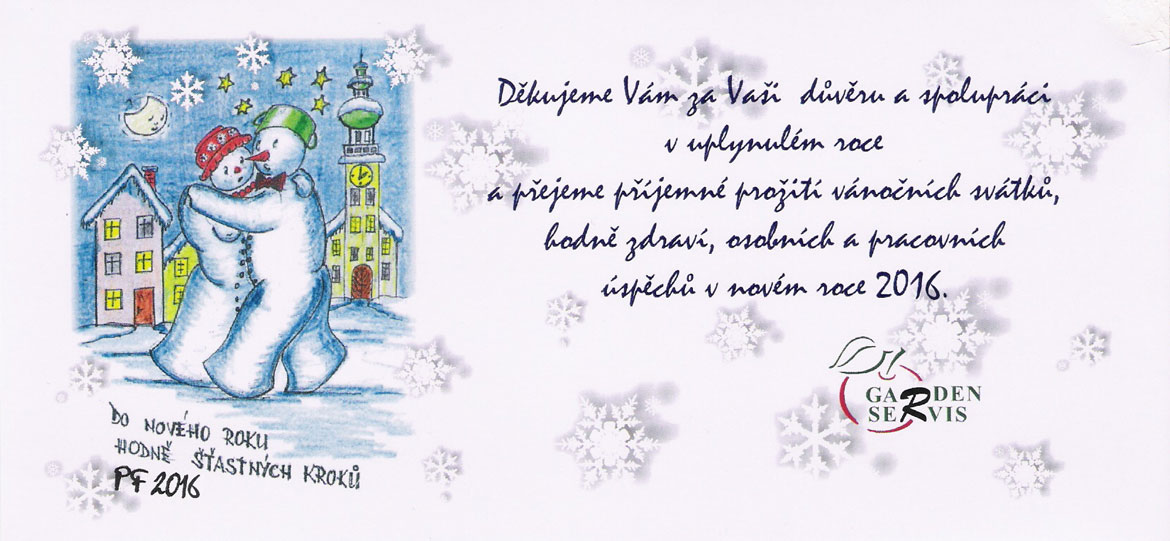 Děkujeme Vám za Vaši důvěru a spolupráci
v uplynulém roce
a přejeme příjemné prožití vánočních svátků,
hodně zdraví, osobních a pracovních
úspěchů v novém roce 2016.
GARDEN
SERVIS
DO NOVÉHO ROKU
HODNĚ ŠŤASTNÝCH KROKŮ
PF 2016